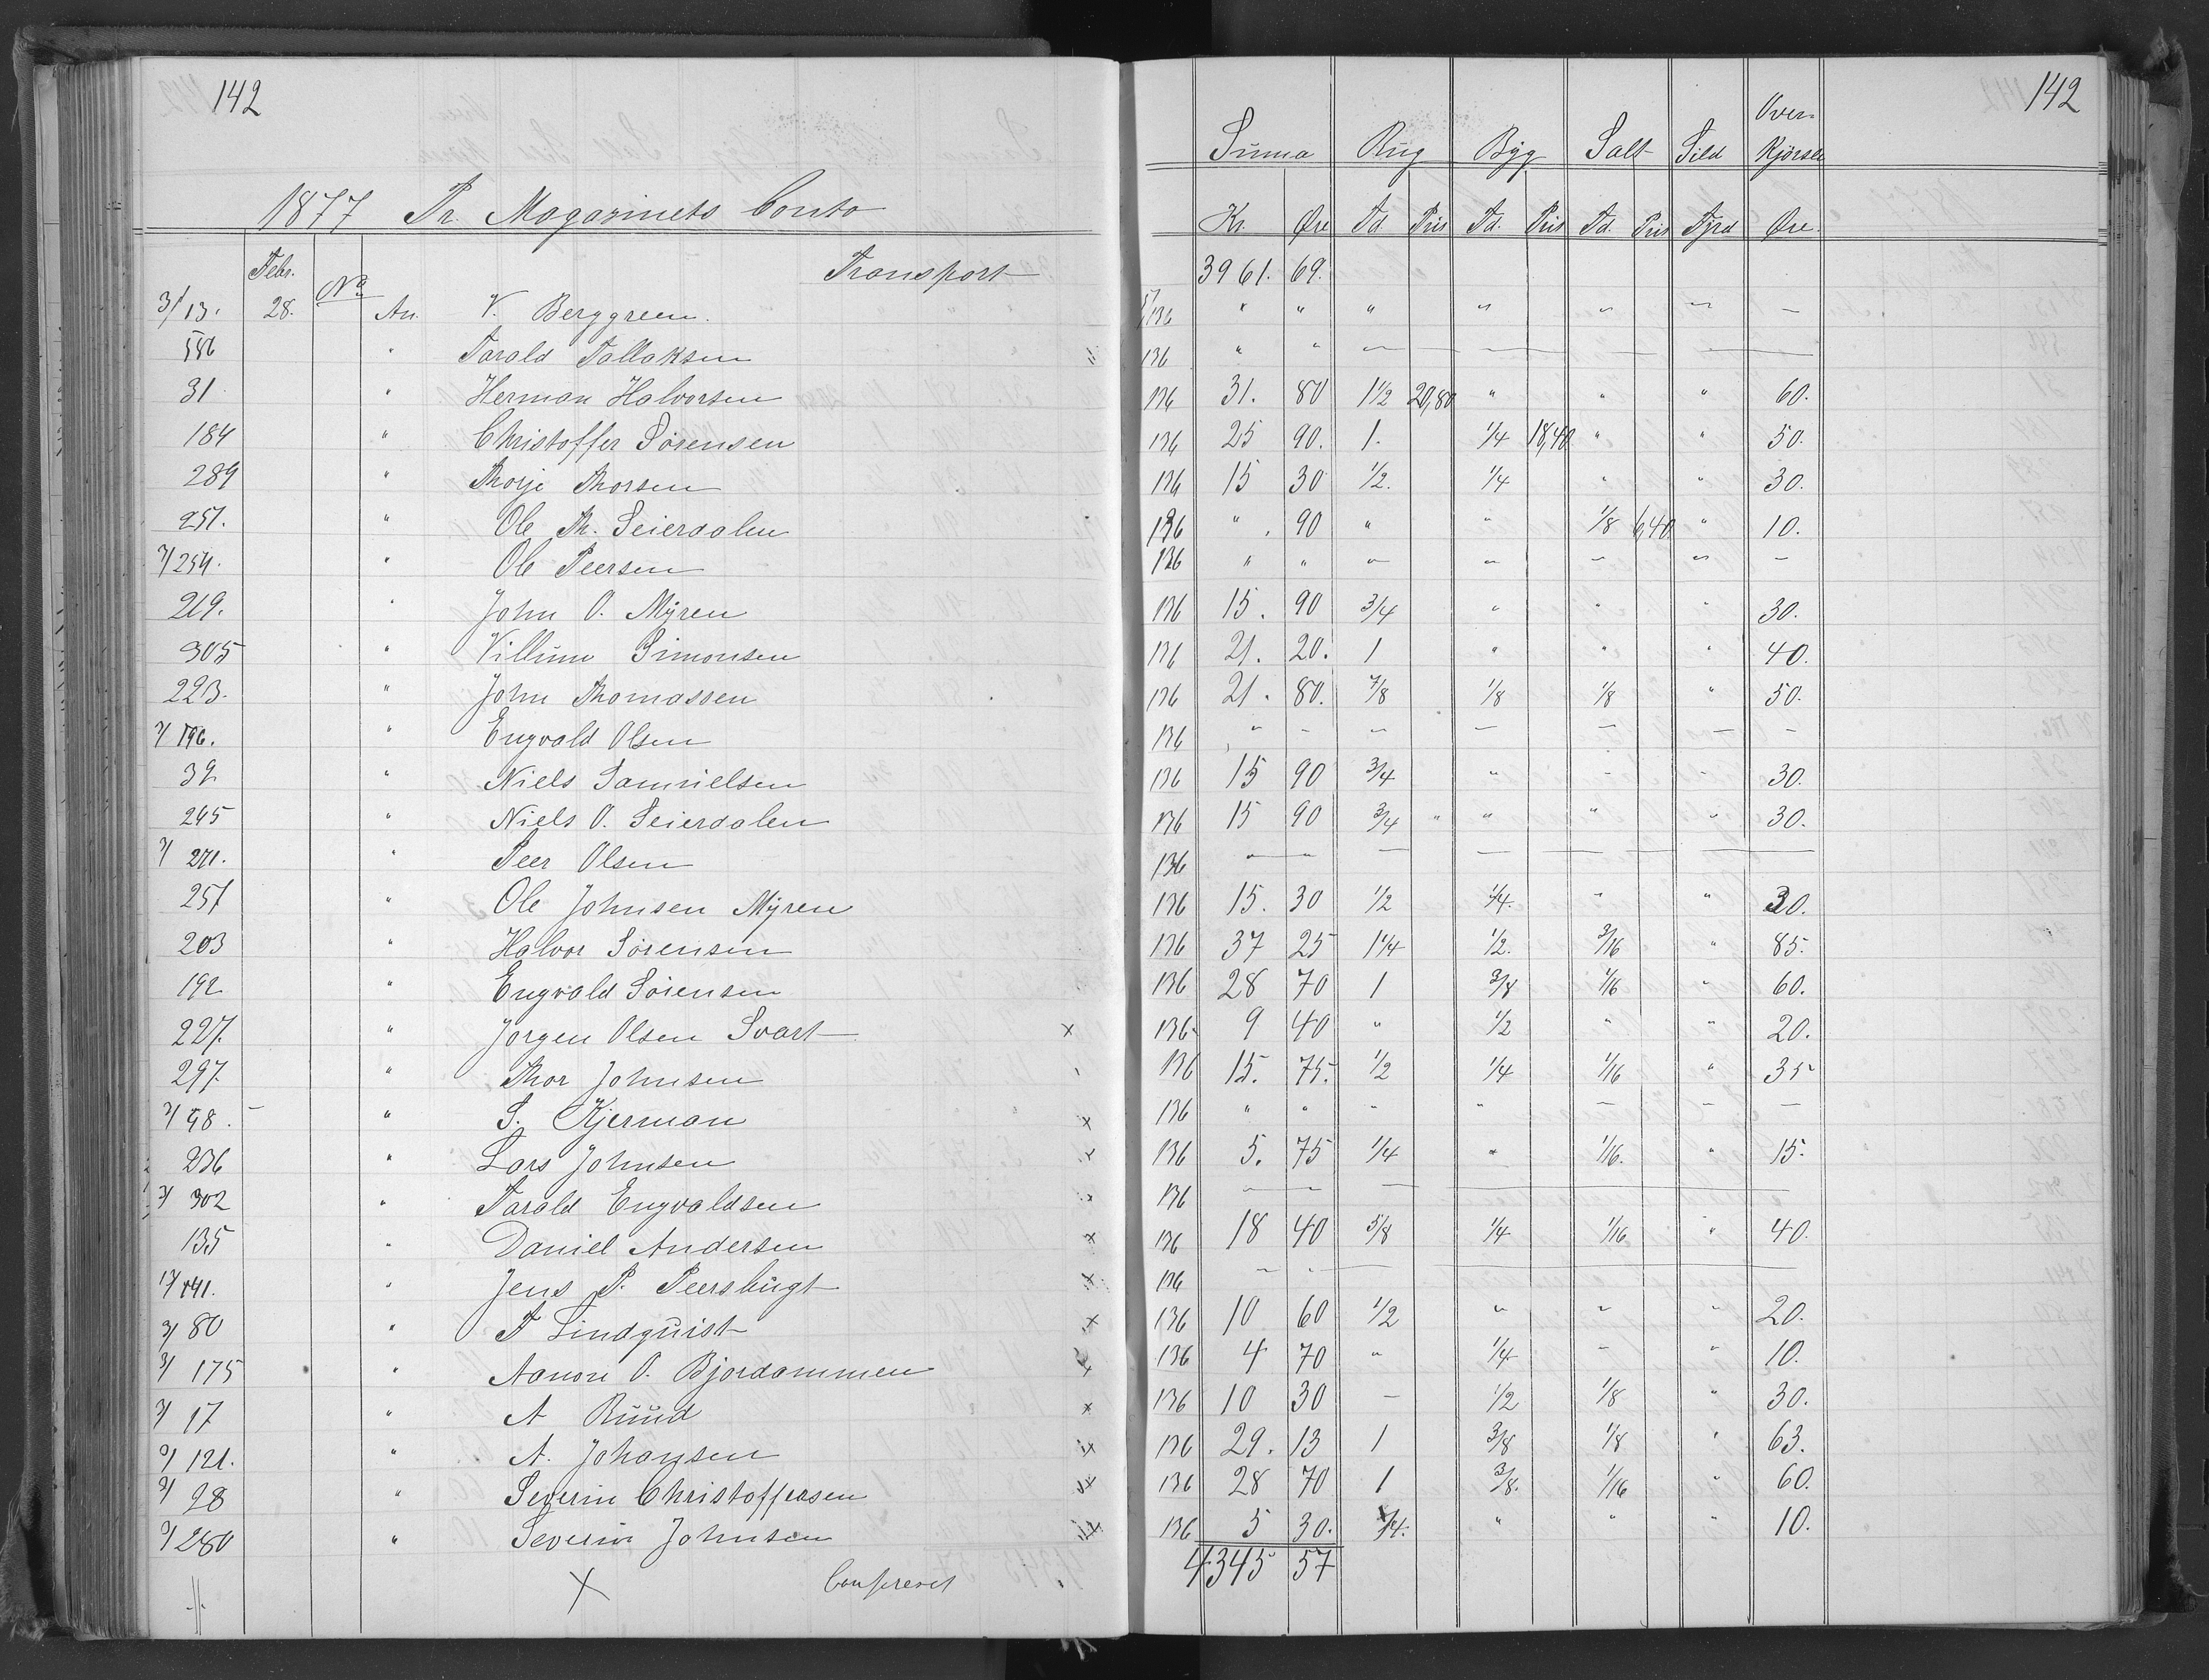 142
1877 Pr. Magazinets Conto
Febr. No Transport
3/13. 28. An. V. Berggreen.
556 " Tarald Tallaksen
31 " Herman Halvorsen
184 " Christoffer Sørensen
289 " Thorje Thorsen
251. " Ole Th. Seierdalen
7/254. " Ole Peersen
219. " John O. Myren
305 " Villum Simonsen
223. " John Thomassen
7/196. " Engvald Olsen
32 " Niels Samuelsen
245 " Niels O. Seierdalen
7/271. " Peer Olsen
257 " Ole Johnsen Myren
203 " Halvor Sørensen
192 " Engvald Sørensen
227. " Jørgen Olsen Svart x
297. " Thor Johnsen
7/98. " S. Kjerman x
236 " Lars Johnsen x
7/302 " Tarald Engvaldsen
135 " Daniel Andersen x
17/141. " Jens P. Peersbugt x
3/80 " F Lindquist x
3/175 " Aanon O. Bjordammen x
7/17 " A Ruud x
9/121. " A. Johansen x
9/28 " Severin Christoffersen x
9/280 " Severin Johnsen x
x Confereret
142
Summa Rug Byg Salt Sild Over-
Kjørsel
Kr. Øre Td. Pris Td. Pris Td. Pris Fjrd Øre.
3961. 69.
136 " " " " " " —
136 " " " — — — —
136 31. 80 1 1/2 20,80 " " " 60.
136 25 90. 1. 1/4 18,40 " " 50.
136 15 30 1/2. 1/4 " " 30.
136 " 90 " " 1/8 6,40 " 10.
136 " " " " " " —
136 15. 90 3/4 " " " 30.
136 21. 20. 1 " " " 40.
136 21. 80. 7/8 1/8 1/8 " 50.
136 " - " — — — -
136 15 90 3/4 " - - 30.
136 15 90 3/4 " " " " 30.
136 — — — — — —
136 15. 30 1/2 1/4. " " 30.
136 37 25 1 1/4 1/2. 3/16 " 85.
136 28 70 1 3/8 1/16 " 60.
136 9 40 " 1/2 " " 20.
136 15. 75. 1/2 1/4 1/16 " 35
136 " " " " — — —
136 5. 75 1/4 " 1/16. " 15.
136 — — — — — —
136 18 40 5/8 1/4 1/16 " 40.
136 — - — — — —
136 10 60 1/2 " " " 20.
136 4 70 " 1/4 - " 10.
136 10 30 — 1/2 1/8 " 30.
136 29. 13 1 3/8 1/8 " 63.
136 28 70 1 3/8. 1/16 " 60.
136 5 30. 1/4. " " " 10.
4345 57